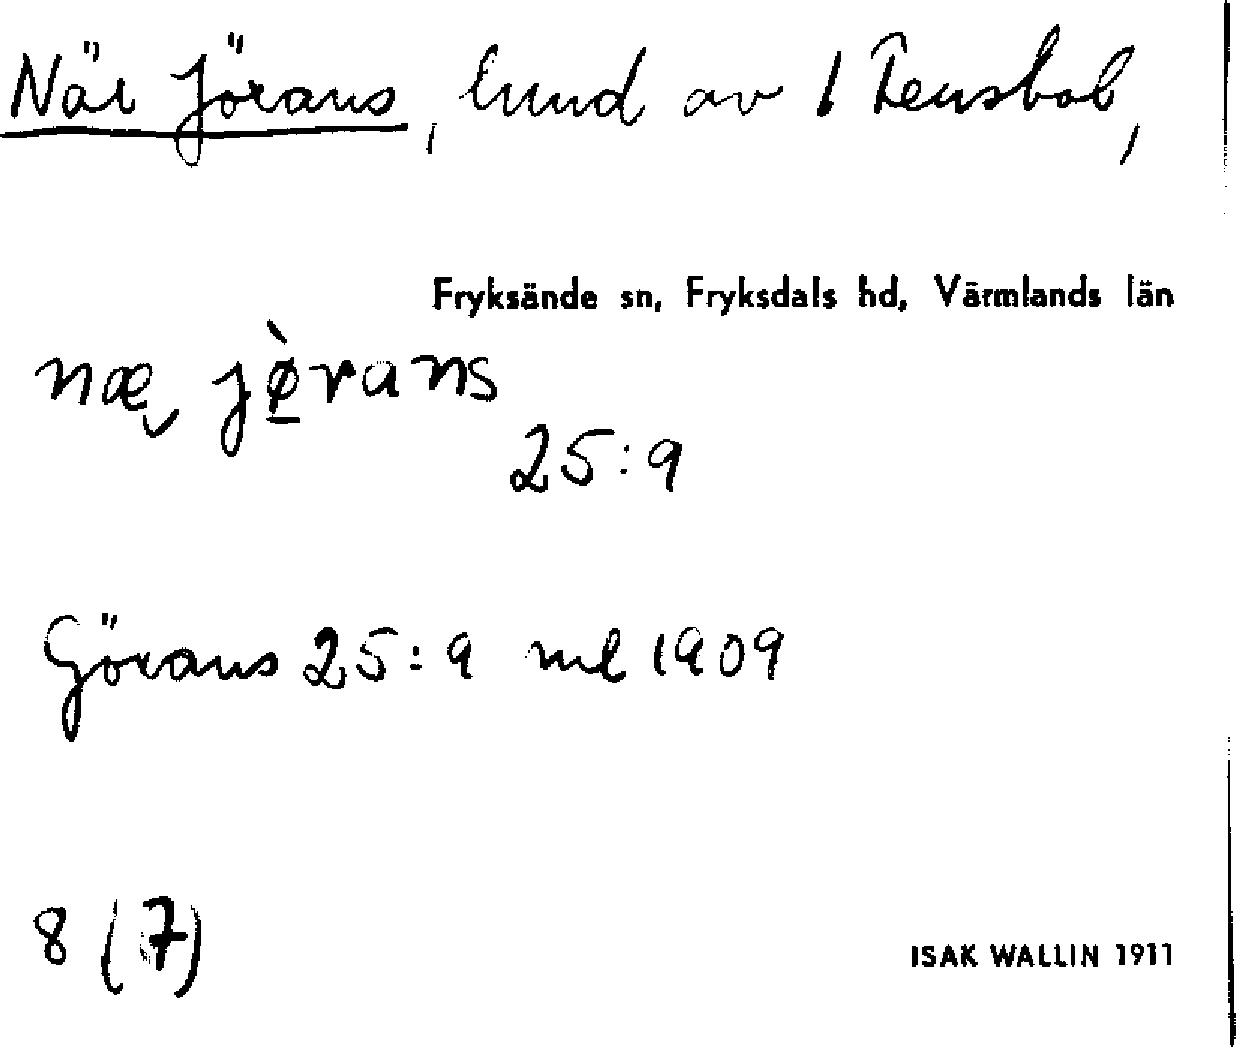 När Jörans, lund av 1 Tensbol,
Fryksände sn, Fryksdals hd, Värmlands län
næ jø̱̀rans
25:9
Görans 25:9 ml 1909
8 (7)
ISAK WALLIN 1911